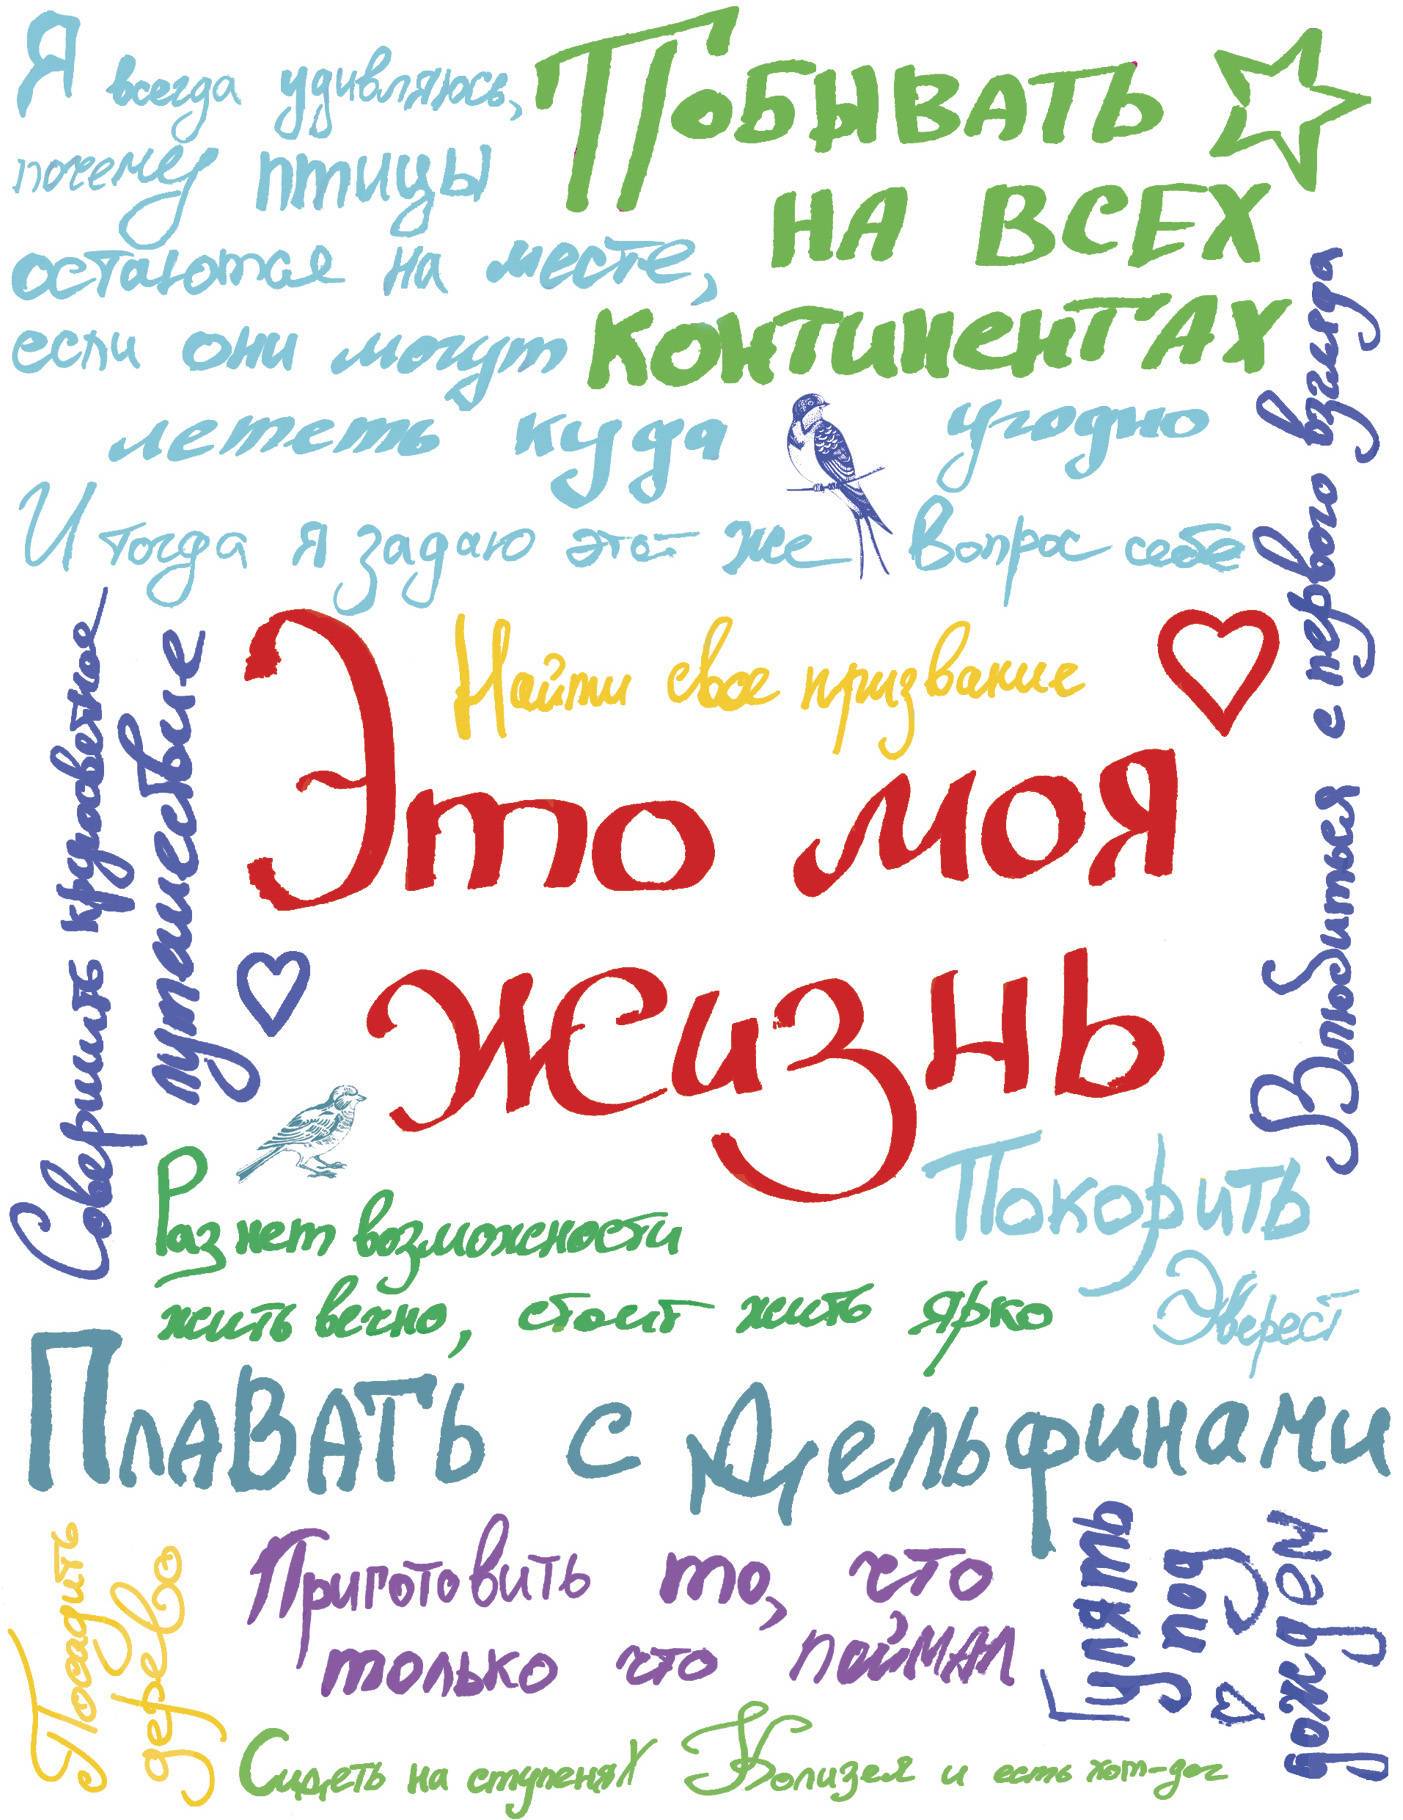 Я всегда удивляюсь,
почему птицы
остаются на месте,
если они могут
лететь куда угодно
И тогда я задаю этот же вопрос себе
Побывать
на всех
континентах
Влюбиться с первого взгляда
Найти свое призвание
Это моя
жизнь
Совершить кругосветное
путешествие
Раз нет возможности
жить вечно, стоит жить ярко
Покорить
Эверест
Плавать с дельфинами
Посадить
дерево
Приготовить то, что
только что поймал
Гулять
под
дождем
Сидеть на ступенях Колизея и есть хот-дог